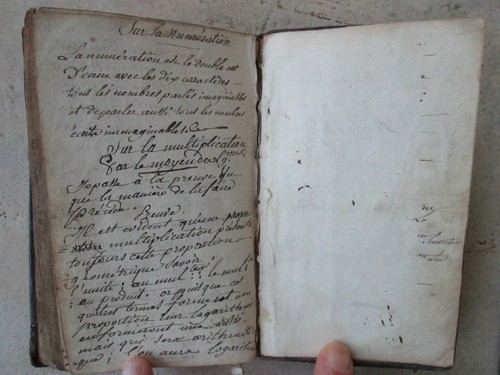 Sur la Numération
La numération est le double art
D'ecrire avec les dix caractères
tous les nombres parlés imaginables
et de parler aussi tous les nombres
écrits immaginables.
Sur la multiplication
Par le moyen des
Je passe à la preuve
que la manière de la faire
Preuve
Il est evident qu'une
multiplication
toujours cette proportion
géometrique savoir
l'unité : au mult.teur :: le mult.
: au produit. or puisque ces
quatres termes forment une
proportion leur logarithmes
en formeront une
mais qui sera
que ; l'on aura logarith